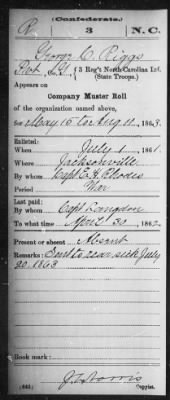 (Confederate.)
R 3 N.C.
George C. Riggs
Pvt, Co. G, 3 Reg't North Carolina Inf.
(State Troops.)
Appears on
Company Muster Roll
of the organization named above,
for May 15 to Aug 11, 1863.
Enlisted:
When July 1, 1861.
Where Jacksonville
By whom Capt E. H. Rhodes
Period War
Last paid:
By whom Capt Langdon
To what time April 30, 1862
Present or absent Absent
Remarks: Sent to rear sick July
20, 1863
Book mark:
(642) Copyist.